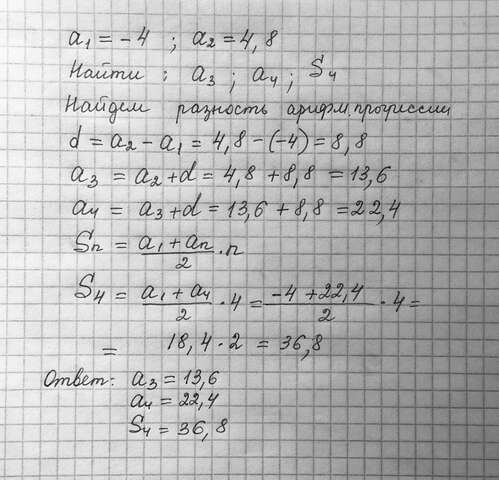 a₁ = -4 ; a₂ = 4,8
Найти : a₃ ; a₄ ; S₄
Найдем разность арифм. прогрессии
d = a₂ - a₁ = 4,8 - (-4) = 8,8
a₃ = a₂ + d = 4,8 + 8,8 = 13,6
a₄ = a₃ + d = 13,6 + 8,8 = 22,4
Sₙ = (a₁ + aₙ)/2 · n
S₄ = (a₁ + a₄)/2 · 4 = (-4 + 22,4)/2 · 4 =
= 18,4 · 2 = 36,8
Ответ: a₃ = 13,6
a₄ = 22,4
S₄ = 36,8